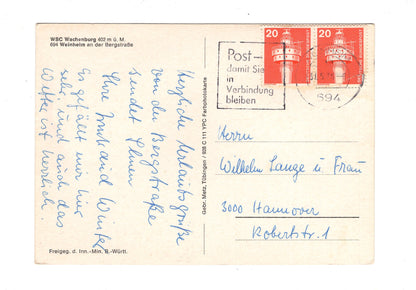 WSC Wachenburg 402 m ü. M.
694 Weinheim an der Bergstraße
Herzliche Urlaubsgrüße
von der Bergstraße
sendet Ihnen
Ihre Irmhand Winter
Es gefällt mir hier
sehr und auch das
Wetter ist herrlich.
Freigeg. d. Inn.-Min. B.-Württ.
Gebr. Metz, Tübingen / 926 C 111 YPC Farbphotokarte
Post-
damit Sie
in
Verbindung
bleiben
20
20
694
Herrn
Wilhelm Lange u. Frau
3000 Hannover
Robertstr. 1